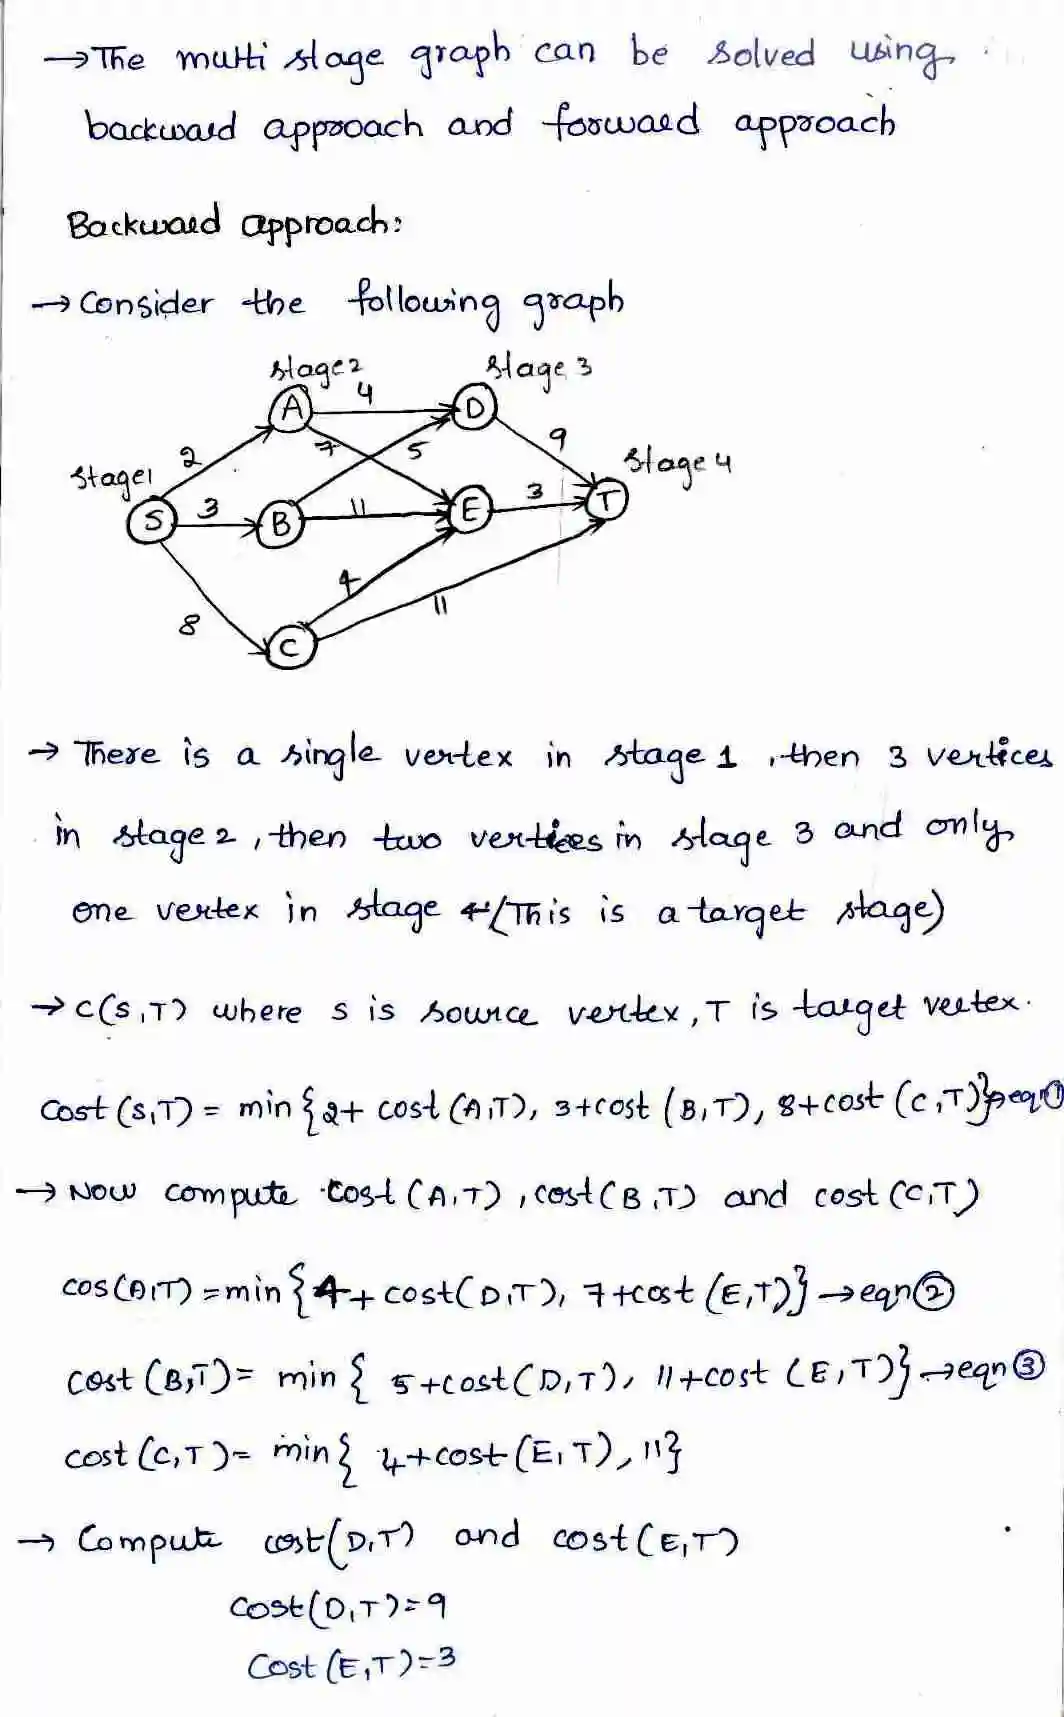 →The multi stage graph can be solved using
backward approach and forward approach
Backward approach:
→ Consider the following graph
stage2 stage 3
4
A D
2 7 5 9
stage1 stage 4
S 3 B 11 E 3 T
4
8 11
C
→ There is a single vertex in stage 1, then 3 vertices
in stage 2, then two vertices in stage 3 and only
one vertex in stage 4 (This is a target stage)
→ C(S,T) where s is source vertex, T is target vertex.
Cost (S,T) = min {2+ cost (A,T), 3+cost (B,T), 8+cost (C,T)}→eqn①
→ Now compute cost (A,T), cost(B,T) and cost (C,T)
cos(A,T) = min {4+ cost(D,T), 7+cost (E,T)} →eqn②
cost (B,T)= min { 5+cost(D,T), 11+cost (E,T)} →eqn③
cost (C,T)= min{ 4+cost(E,T), 11}
→ Compute cost(D,T) and cost(E,T)
Cost(D,T)=9
Cost (E,T)=3